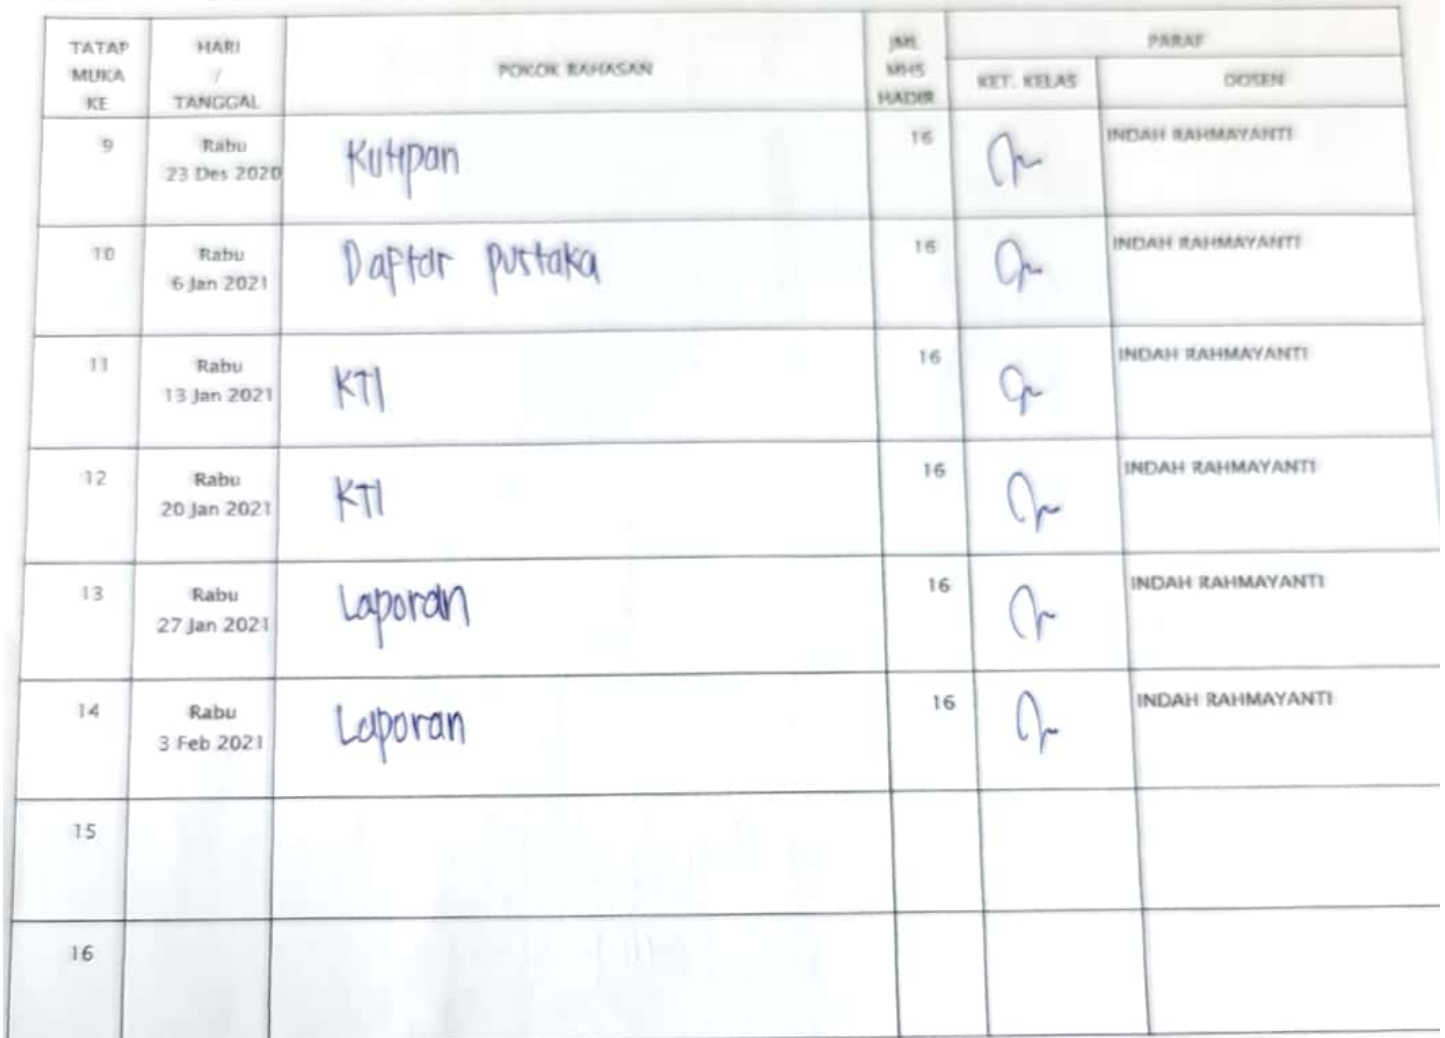 TATAP MUKA KE HARI / TANGGAL POKOK BAHASAN JML MHS HADIR PARAF
KET. KELAS DOSEN
9 Rabu 23 Des 2020 Kutipan 16 INDAH RAHMAYANTI
10 Rabu 6 Jan 2021 Daftar pustaka 16 INDAH RAHMAYANTI
11 Rabu 13 Jan 2021 KTI 16 INDAH RAHMAYANTI
12 Rabu 20 Jan 2021 KTI 16 INDAH RAHMAYANTI
13 Rabu 27 Jan 2021 Laporan 16 INDAH RAHMAYANTI
14 Rabu 3 Feb 2021 Laporan 16 INDAH RAHMAYANTI
15
16